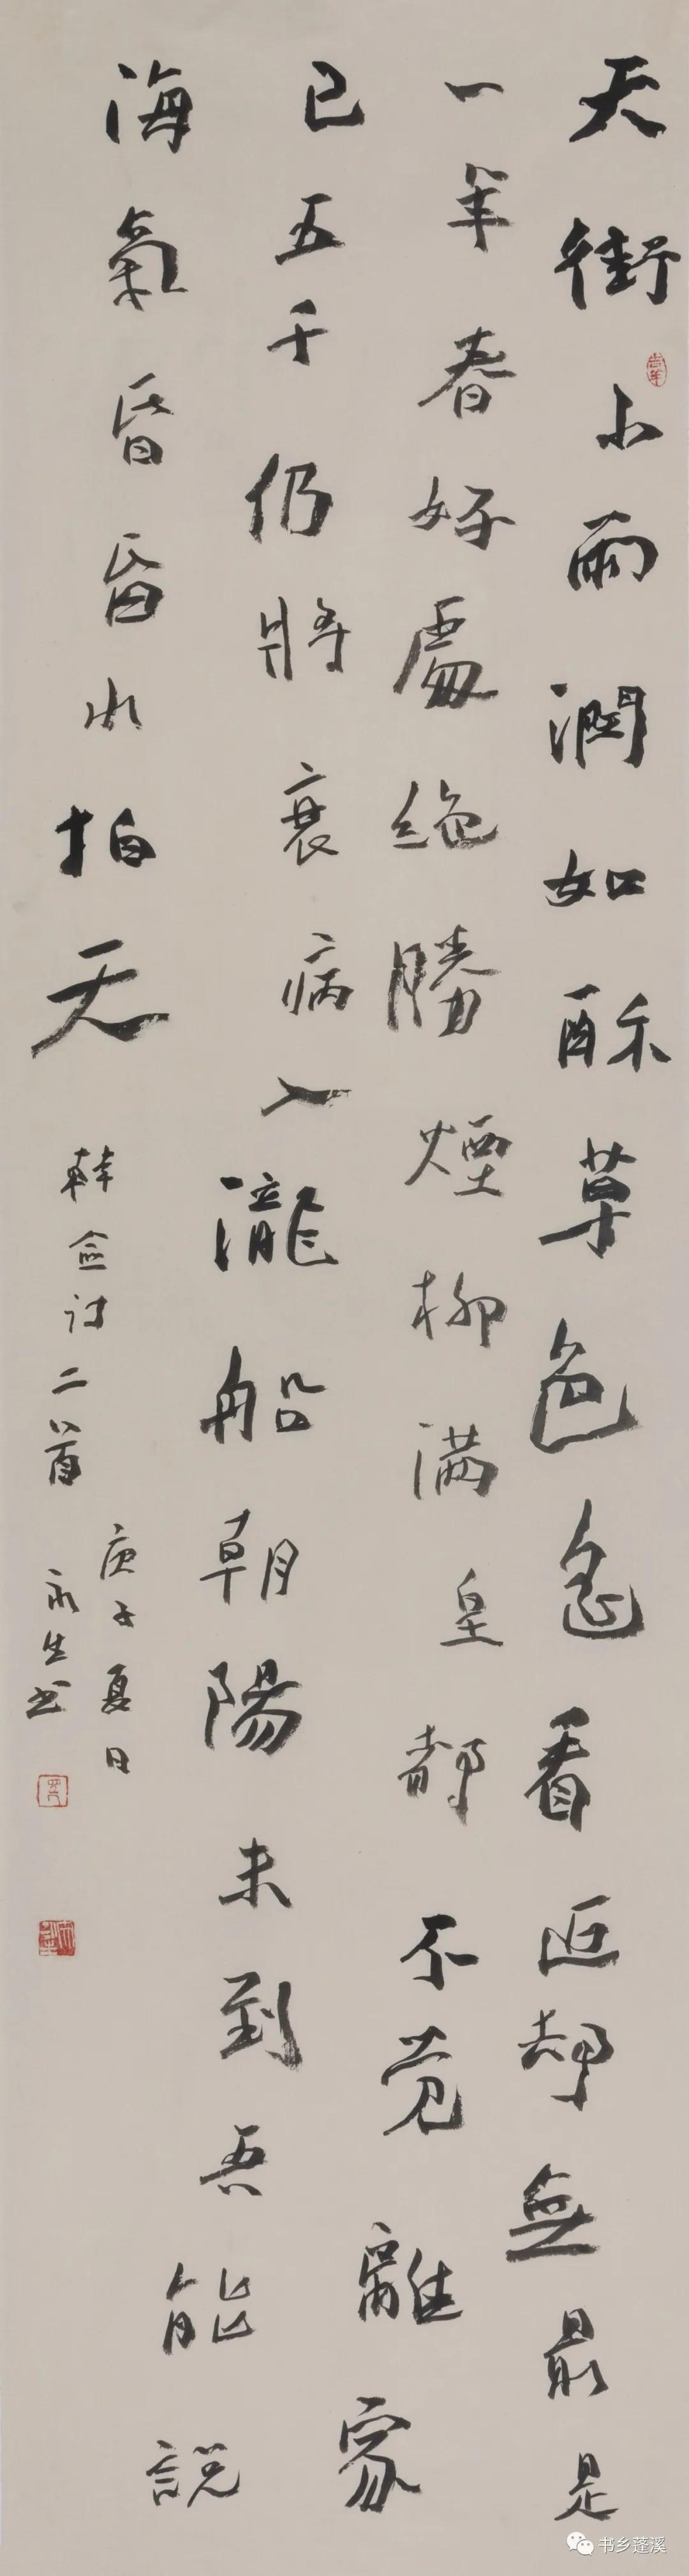 天街小雨潤如酥草色遙看近却無最是
一年春好處絶勝煙柳满皇都不觉離家
已五千仍將衰病入瀧船朝陽未到吾能說
海氣昏昏水拍天
韓愈诗二首
庚子夏日
永生书
书乡蓬溪